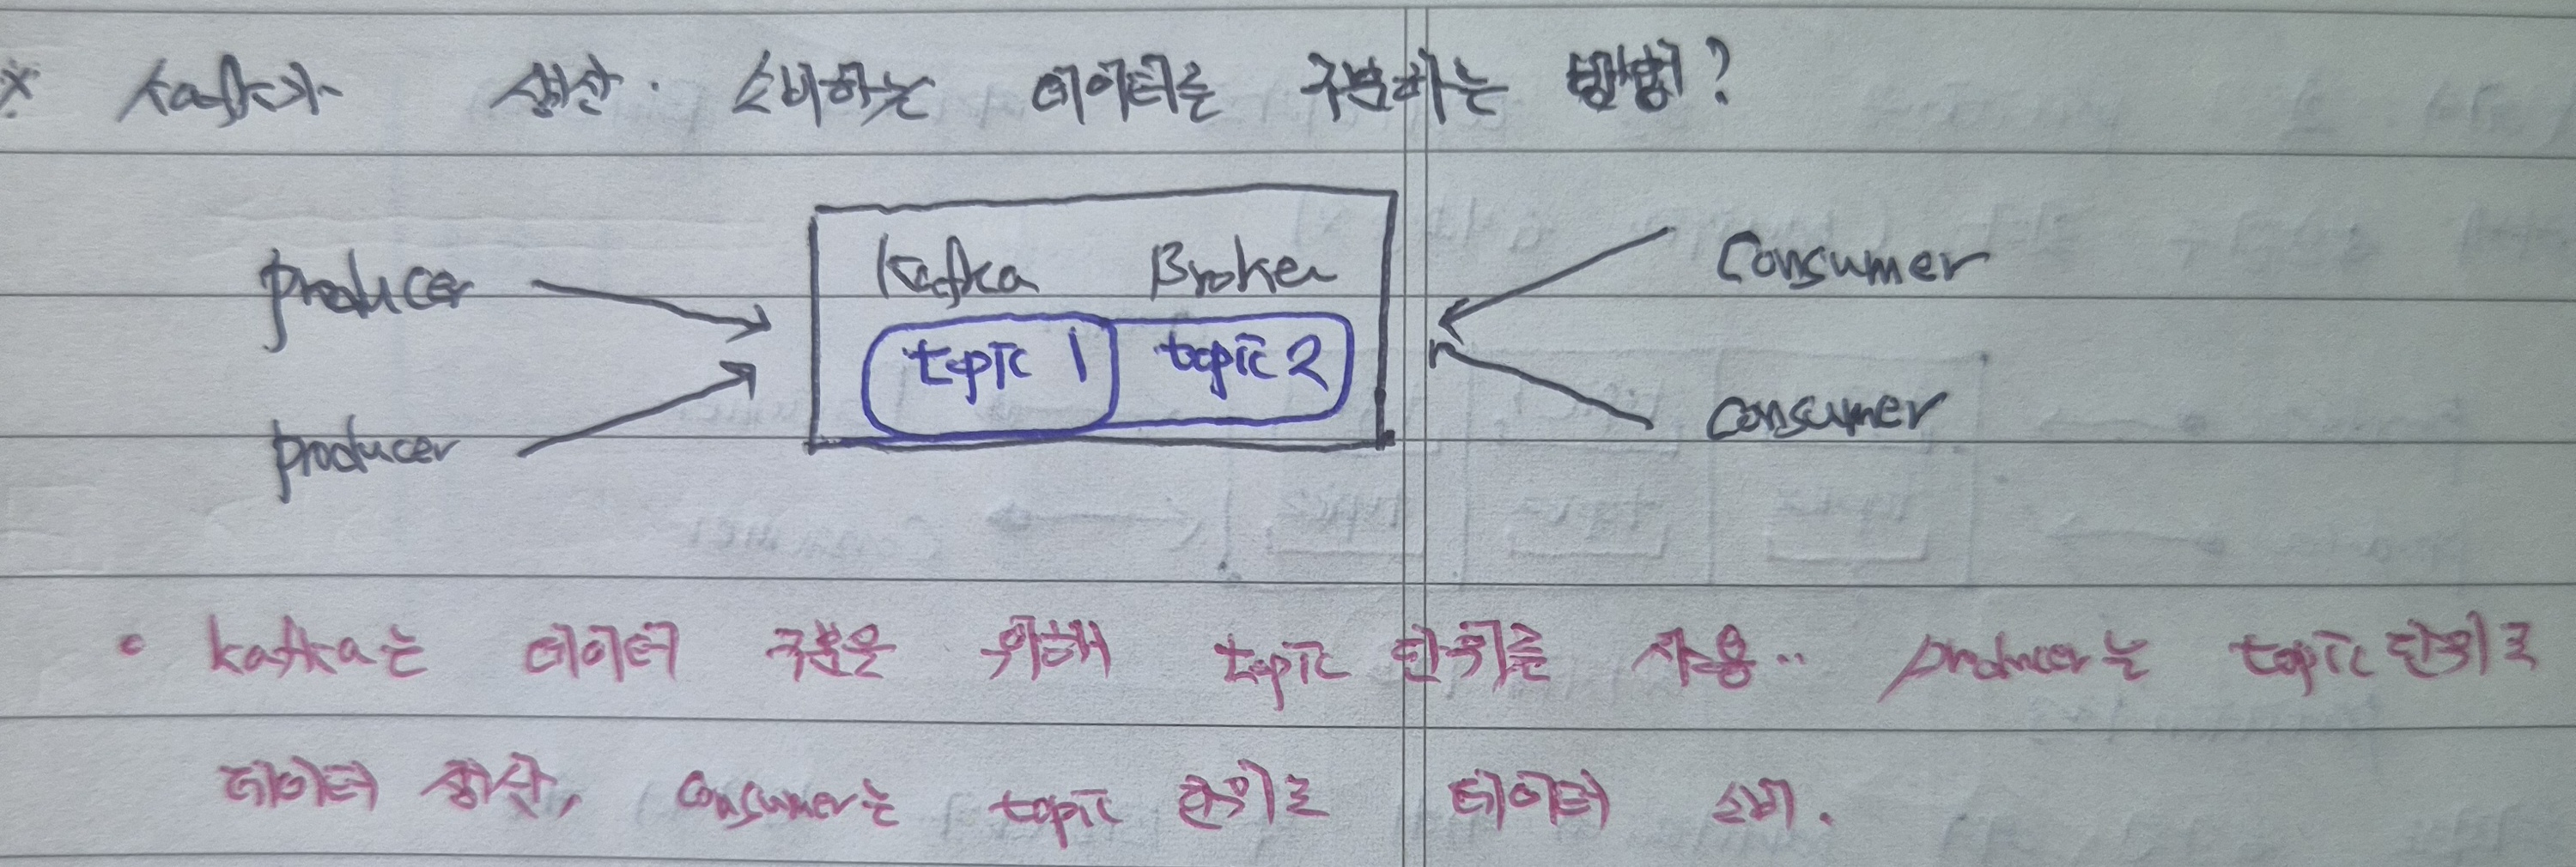 ※ kafka가 생산·소비하는 데이터를 구분하는 방법?
Kafka Broker
producer
Consumer
topic 1 topic 2
producer
consumer
• kafka는 데이터 구분을 위해 topic 단위를 사용.. producer는 topic 단위로
데이터 생산, consumer는 topic 단위로 데이터 소비.